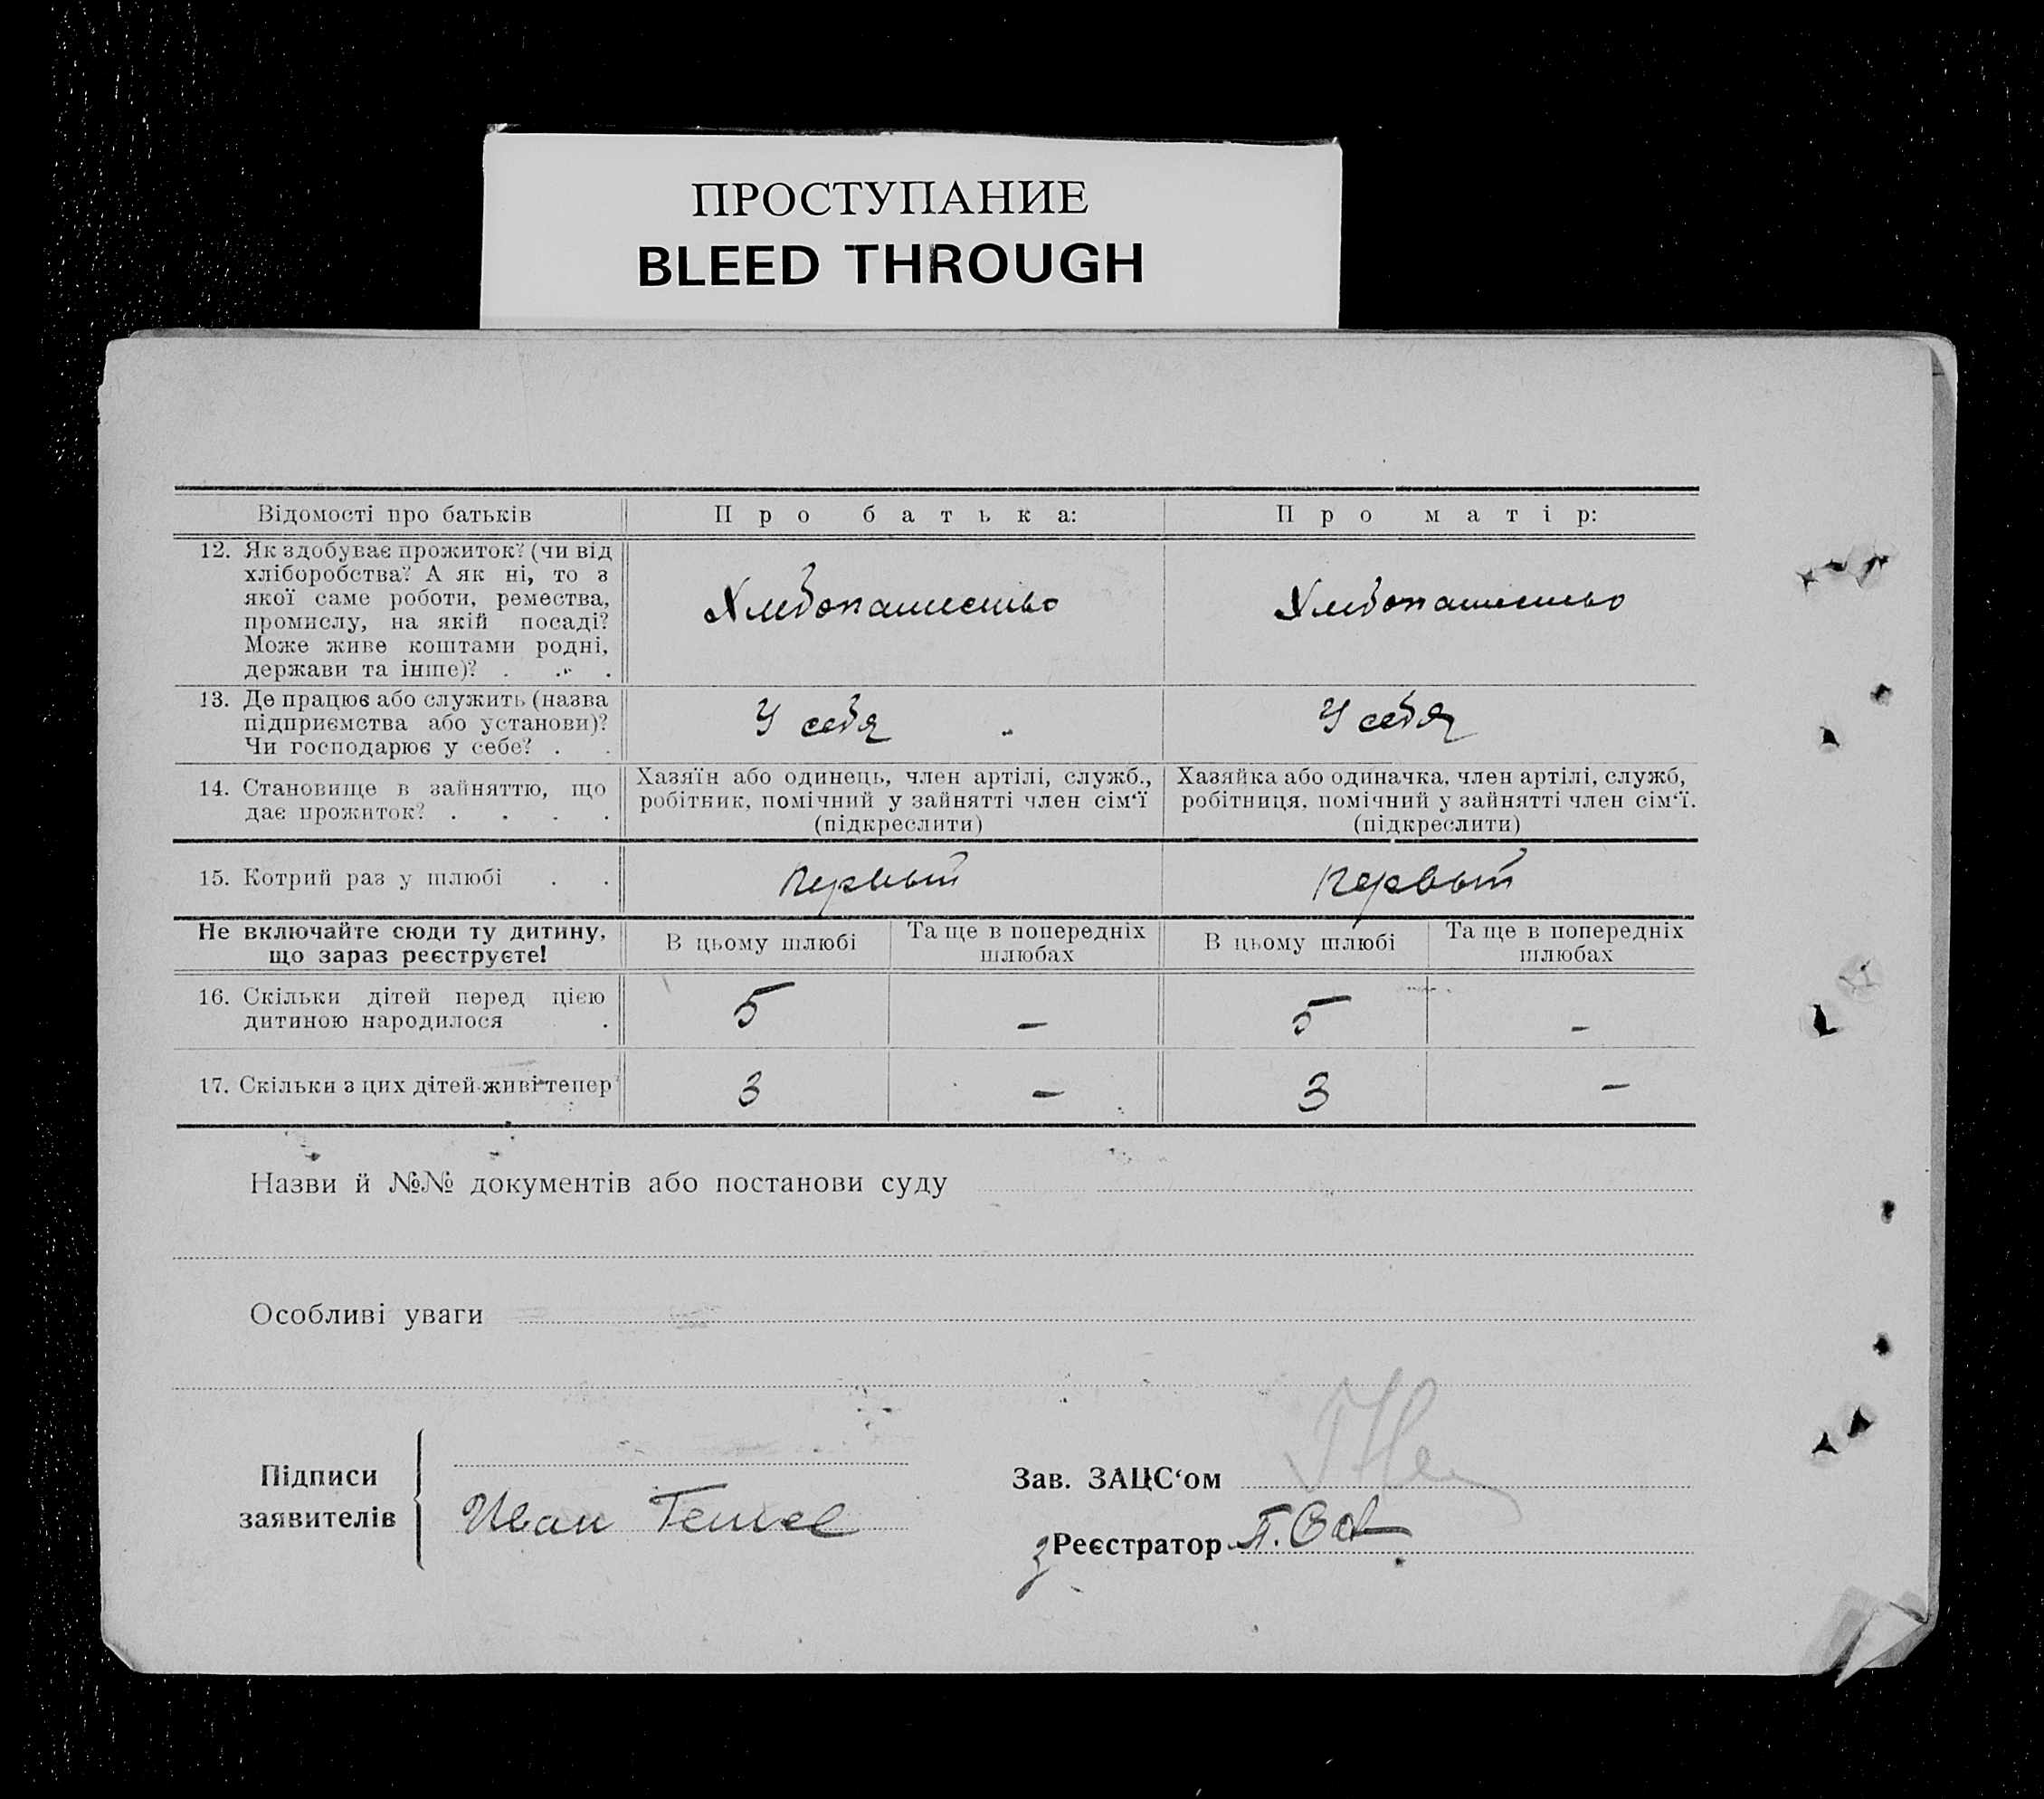 ПРОСТУПАНИЕ
BLEED THROUGH
Відомості про батьків
Про батька:
Про матір:
12. Як здобуває прожиток? (чи від
хліборобства? А як ні, то з
якої саме роботи, ремества,
промислу, на якій посаді?
Може живе коштами родні,
держави та інше)? . . .
Хлебопашество
Хлебопашество
13. Де працює або служить (назва
підприємства або установи)?
Чи господарює у себе? . .
У себя
У себя
14. Становище в зайняттю, що
дає прожиток? . . . .
Хазяїн або одинець, член артілі, служб.,
робітник, помічний у зайнятті член сім‘ї
(підкреслити)
Хазяйка або одиначка, член артілі, служб,
робітниця, помічний у зайнятті член сім‘ї.
(підкреслити)
15. Котрий раз у шлюбі . .
первый
первый
Не включайте сюди ту дитину,
що зараз реєструєте!
В цьому шлюбі
Та ще в попередніх
шлюбах
В цьому шлюбі
Та ще в попередніх
шлюбах
16. Скільки дітей перед цією
дитиною народилося .
5
—
5
—
17. Скільки з цих дітей живі тепер
3
—
3
—
Назви й №№ документів або постанови суду
Особливі уваги
Підписи
заявителів
Иван
Зав. ЗАЦС‘ом
Реєстратор